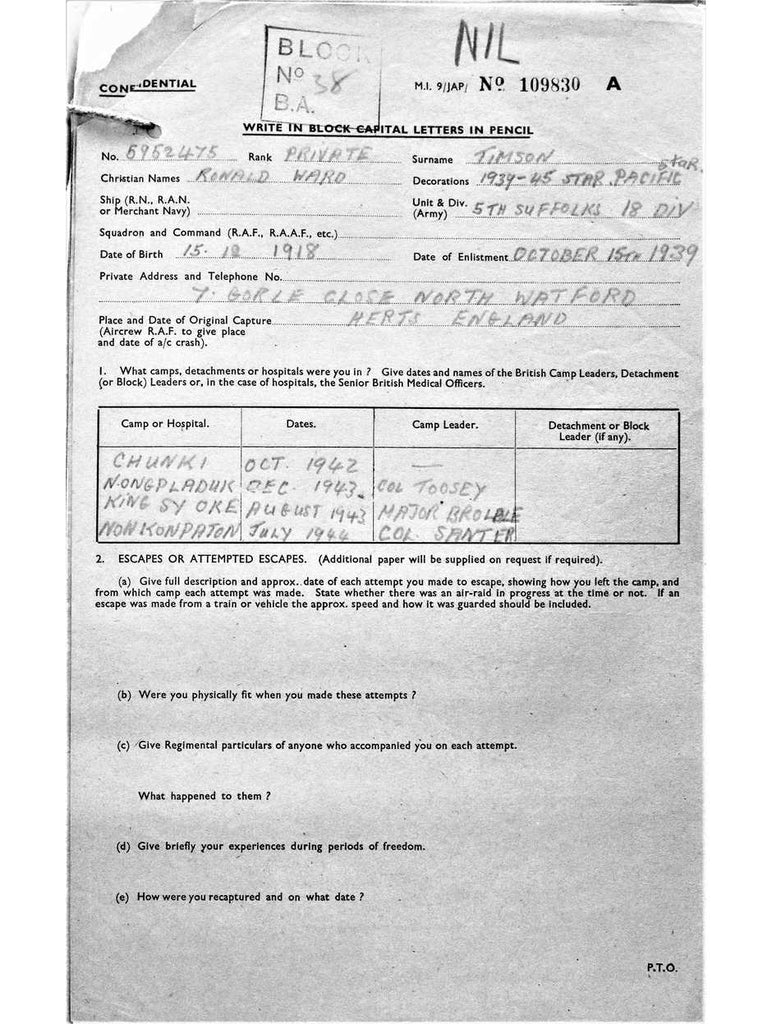 BLOCK
No 38
B.A.
NIL
CONFIDENTIAL
M.I. 9/JAP/ No 109830 A
WRITE IN BLOCK CAPITAL LETTERS IN PENCIL
No. 5952475 Rank PRIVATE Surname TIMSON
Christian Names RONALD WARD Decorations 1939-45 STAR. PACIFIC STAR.
Ship (R.N., R.A.N. or Merchant Navy)
Unit & Div. (Army) 5TH SUFFOLKS 18 DIV
Squadron and Command (R.A.F., R.A.A.F., etc.)
Date of Birth 15. 12 1918 Date of Enlistment OCTOBER 15TH 1939
Private Address and Telephone No.
7. GORLE CLOSE NORTH WATFORD
Place and Date of Original Capture HERTS ENGLAND
(Aircrew R.A.F. to give place
and date of a/c crash).
1. What camps, detachments or hospitals were you in ? Give dates and names of the British Camp Leaders, Detachment
(or Block) Leaders or, in the case of hospitals, the Senior British Medical Officers.
Camp or Hospital. Dates. Camp Leader. Detachment or Block Leader (if any).
CHUNKI OCT. 1942 —
NONGPLADUK DEC. 1943. COL TOOSEY
KING SY OKE AUGUST 1943 MAJOR
NONKONPATON JULY 1944 COL. SANTER
2. ESCAPES OR ATTEMPTED ESCAPES. (Additional paper will be supplied on request if required).
(a) Give full description and approx. date of each attempt you made to escape, showing how you left the camp, and
from which camp each attempt was made. State whether there was an air-raid in progress at the time or not. If an
escape was made from a train or vehicle the approx. speed and how it was guarded should be included.
(b) Were you physically fit when you made these attempts ?
(c) Give Regimental particulars of anyone who accompanied you on each attempt.
What happened to them ?
(d) Give briefly your experiences during periods of freedom.
(e) How were you recaptured and on what date ?
P.T.O.